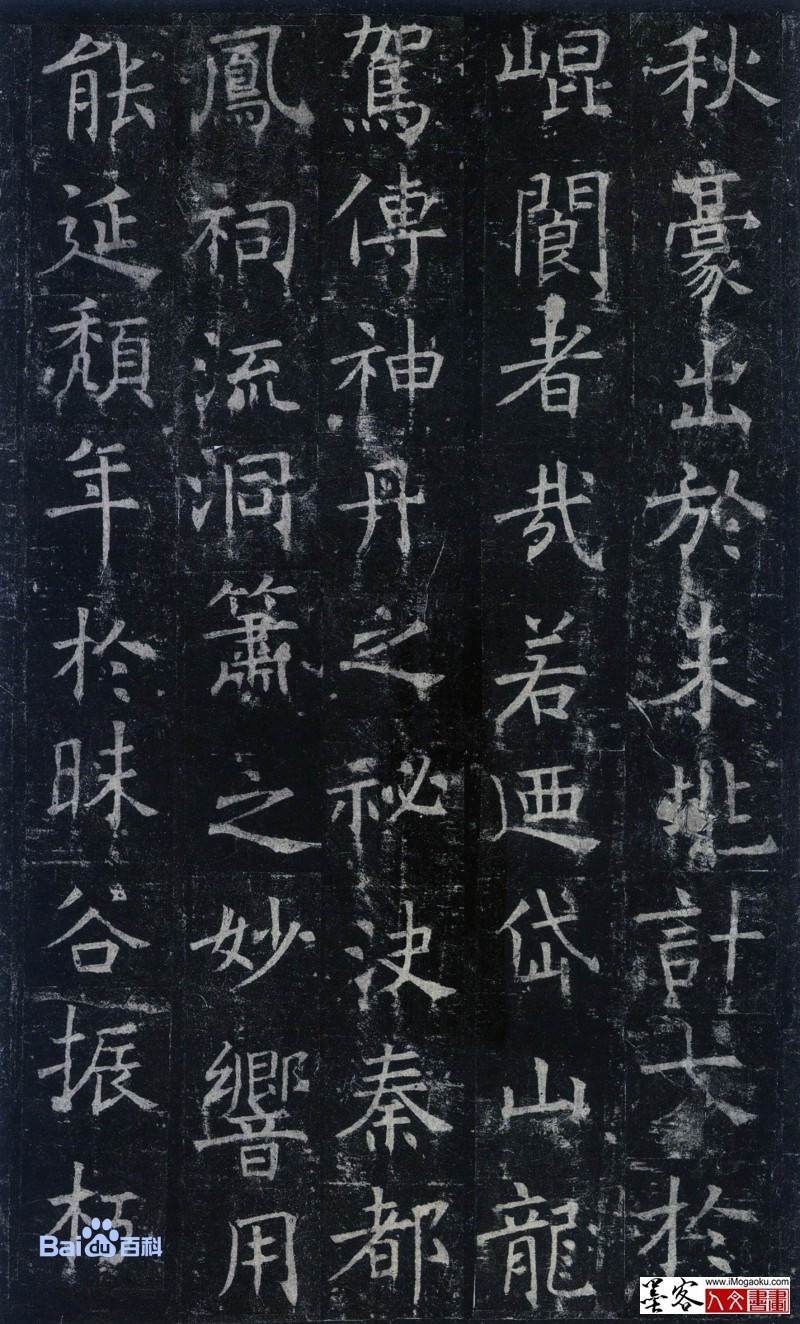 秋豪出於未兆計大於
崐閬者哉若迺岱山龍
駕傳神丹之祕決秦都
鳳祠流洞簫之妙響用
能延頹年於昧谷振朽
Baidu百科
墨客 www.iMogaoku.com
人文書畫